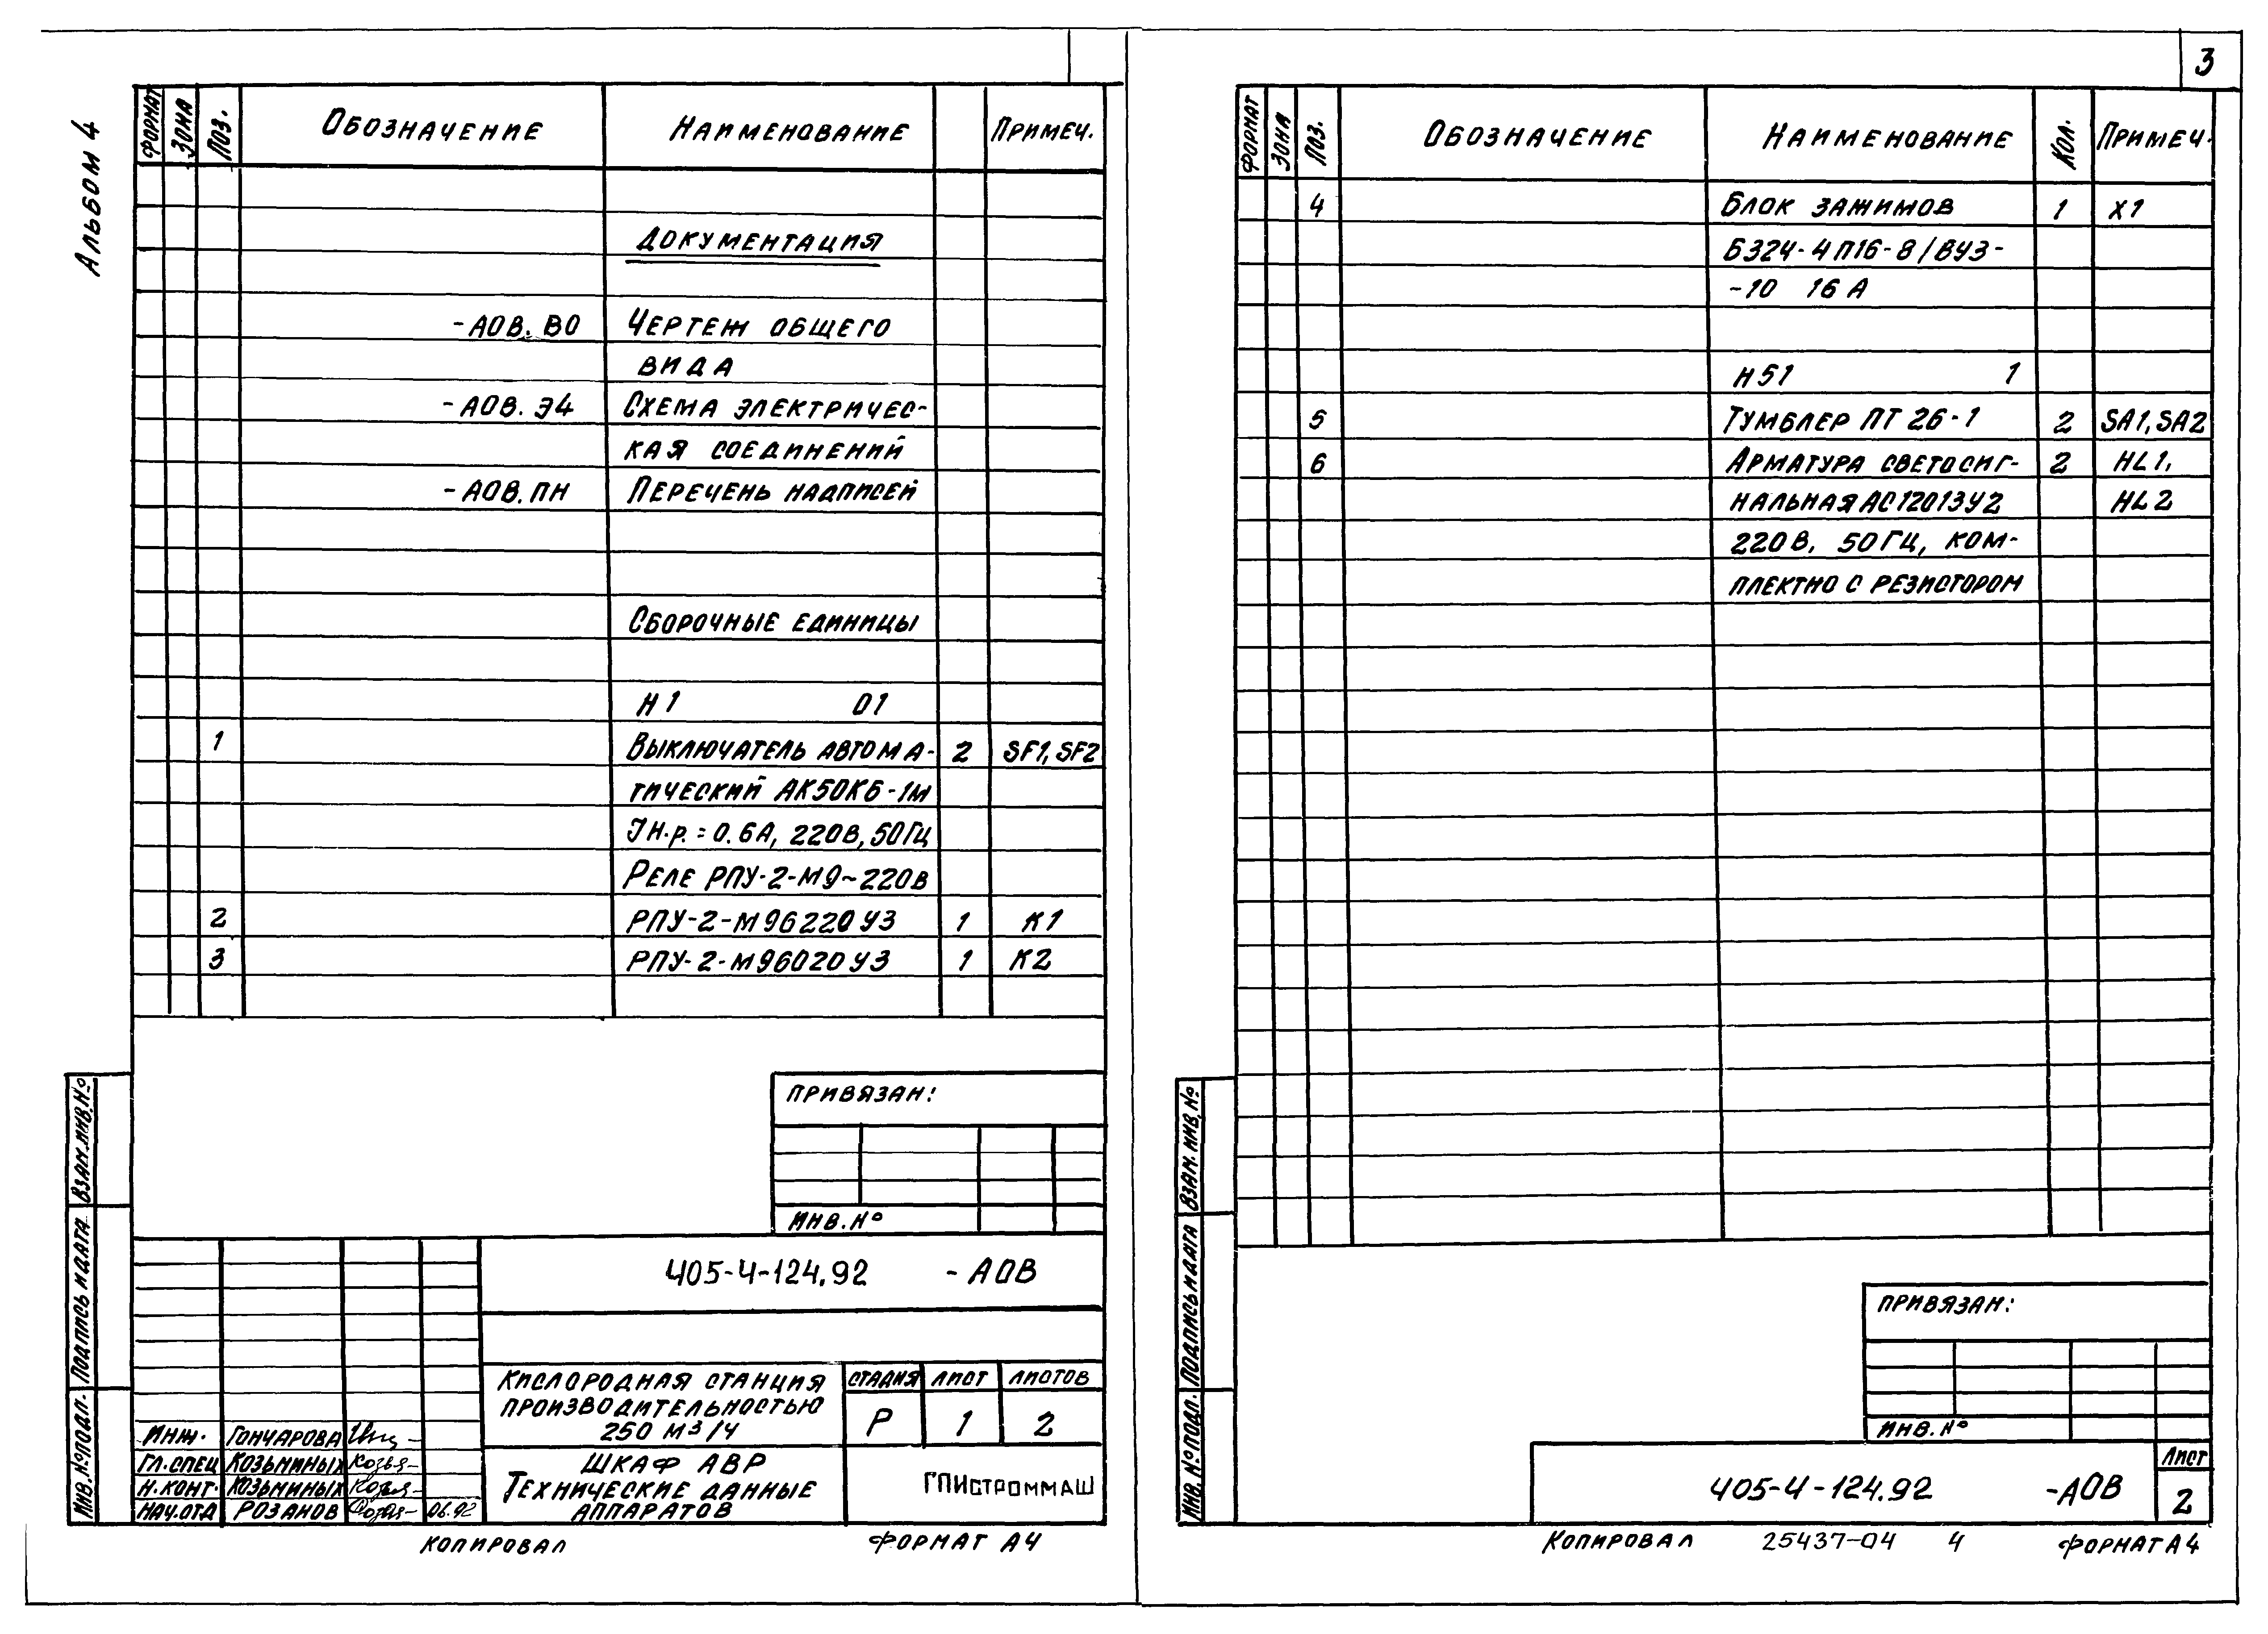 Альбом 4
ФОРМАТ ЗОНА ПОЗ. ОБОЗНАЧЕНИЕ НАИМЕНОВАНИЕ ПРИМЕЧ.
ДОКУМЕНТАЦИЯ
-АОВ.ВО ЧЕРТЕЖ ОБЩЕГО
ВИДА
-АОВ.Э4 СХЕМА ЭЛЕКТРИЧЕС-
КАЯ СОЕДИНЕНИЙ
-АОВ.ПН ПЕРЕЧЕНЬ НАДПИСЕЙ
СБОРОЧНЫЕ ЕДИНИЦЫ
Н1 01
1 ВЫКЛЮЧАТЕЛЬ АВТОМА- 2 SF1, SF2
ТИЧЕСКИЙ АК50КБ-1М
Iн.р.=0.6А, 220В, 50Гц
РЕЛЕ РПУ-2-М9~220В
2 РПУ-2-М96220У3 1 К1
3 РПУ-2-М96020У3 1 К2
ПРИВЯЗАН:
ИНВ.№
ВЗАМ.ИНВ.№
ПОДПИСЬ И ДАТА
ИНВ.№ ПОДЛ.
405-4-124.92 -АОВ
КИСЛОРОДНАЯ СТАНЦИЯ
ПРОИЗВОДИТЕЛЬНОСТЬЮ
250 м³/ч
СТАДИЯ ЛИСТ ЛИСТОВ
Р 1 2
ИНЖ. ГОНЧАРОВА
ГЛ.СПЕЦ КОЗЬМИНЫХ
Н.КОНТ. КОЗЬМИНЫХ
НАЧ.ОТД РОЗАНОВ 06.92
ШКАФ АВР
ТЕХНИЧЕСКИЕ ДАННЫЕ
АППАРАТОВ
ГПИСТРОММАШ
КОПИРОВАЛ ФОРМАТ А4
3
ФОРМАТ ЗОНА ПОЗ. ОБОЗНАЧЕНИЕ НАИМЕНОВАНИЕ КОЛ. ПРИМЕЧ.
4 БЛОК ЗАЖИМОВ 1 Х1
БЗ24-4П16-8/ВУЗ-
-10 16А
Н51 1
5 ТУМБЛЕР ПТ 26-1 2 SA1, SA2
6 АРМАТУРА СВЕТОСИГ- 2 HL1,
НАЛЬНАЯ АС12013У2 HL2
220В, 50Гц, КОМ-
ПЛЕКТНО С РЕЗИСТОРОМ
ВЗАМ. ИНВ. №
ПОДПИСЬ И ДАТА
ИНВ. № ПОДЛ.
ПРИВЯЗАН:
ИНВ. №
405-4-124.92 -АОВ
ЛИСТ
2
КОПИРОВАЛ 25437-04 4 ФОРМАТ А4